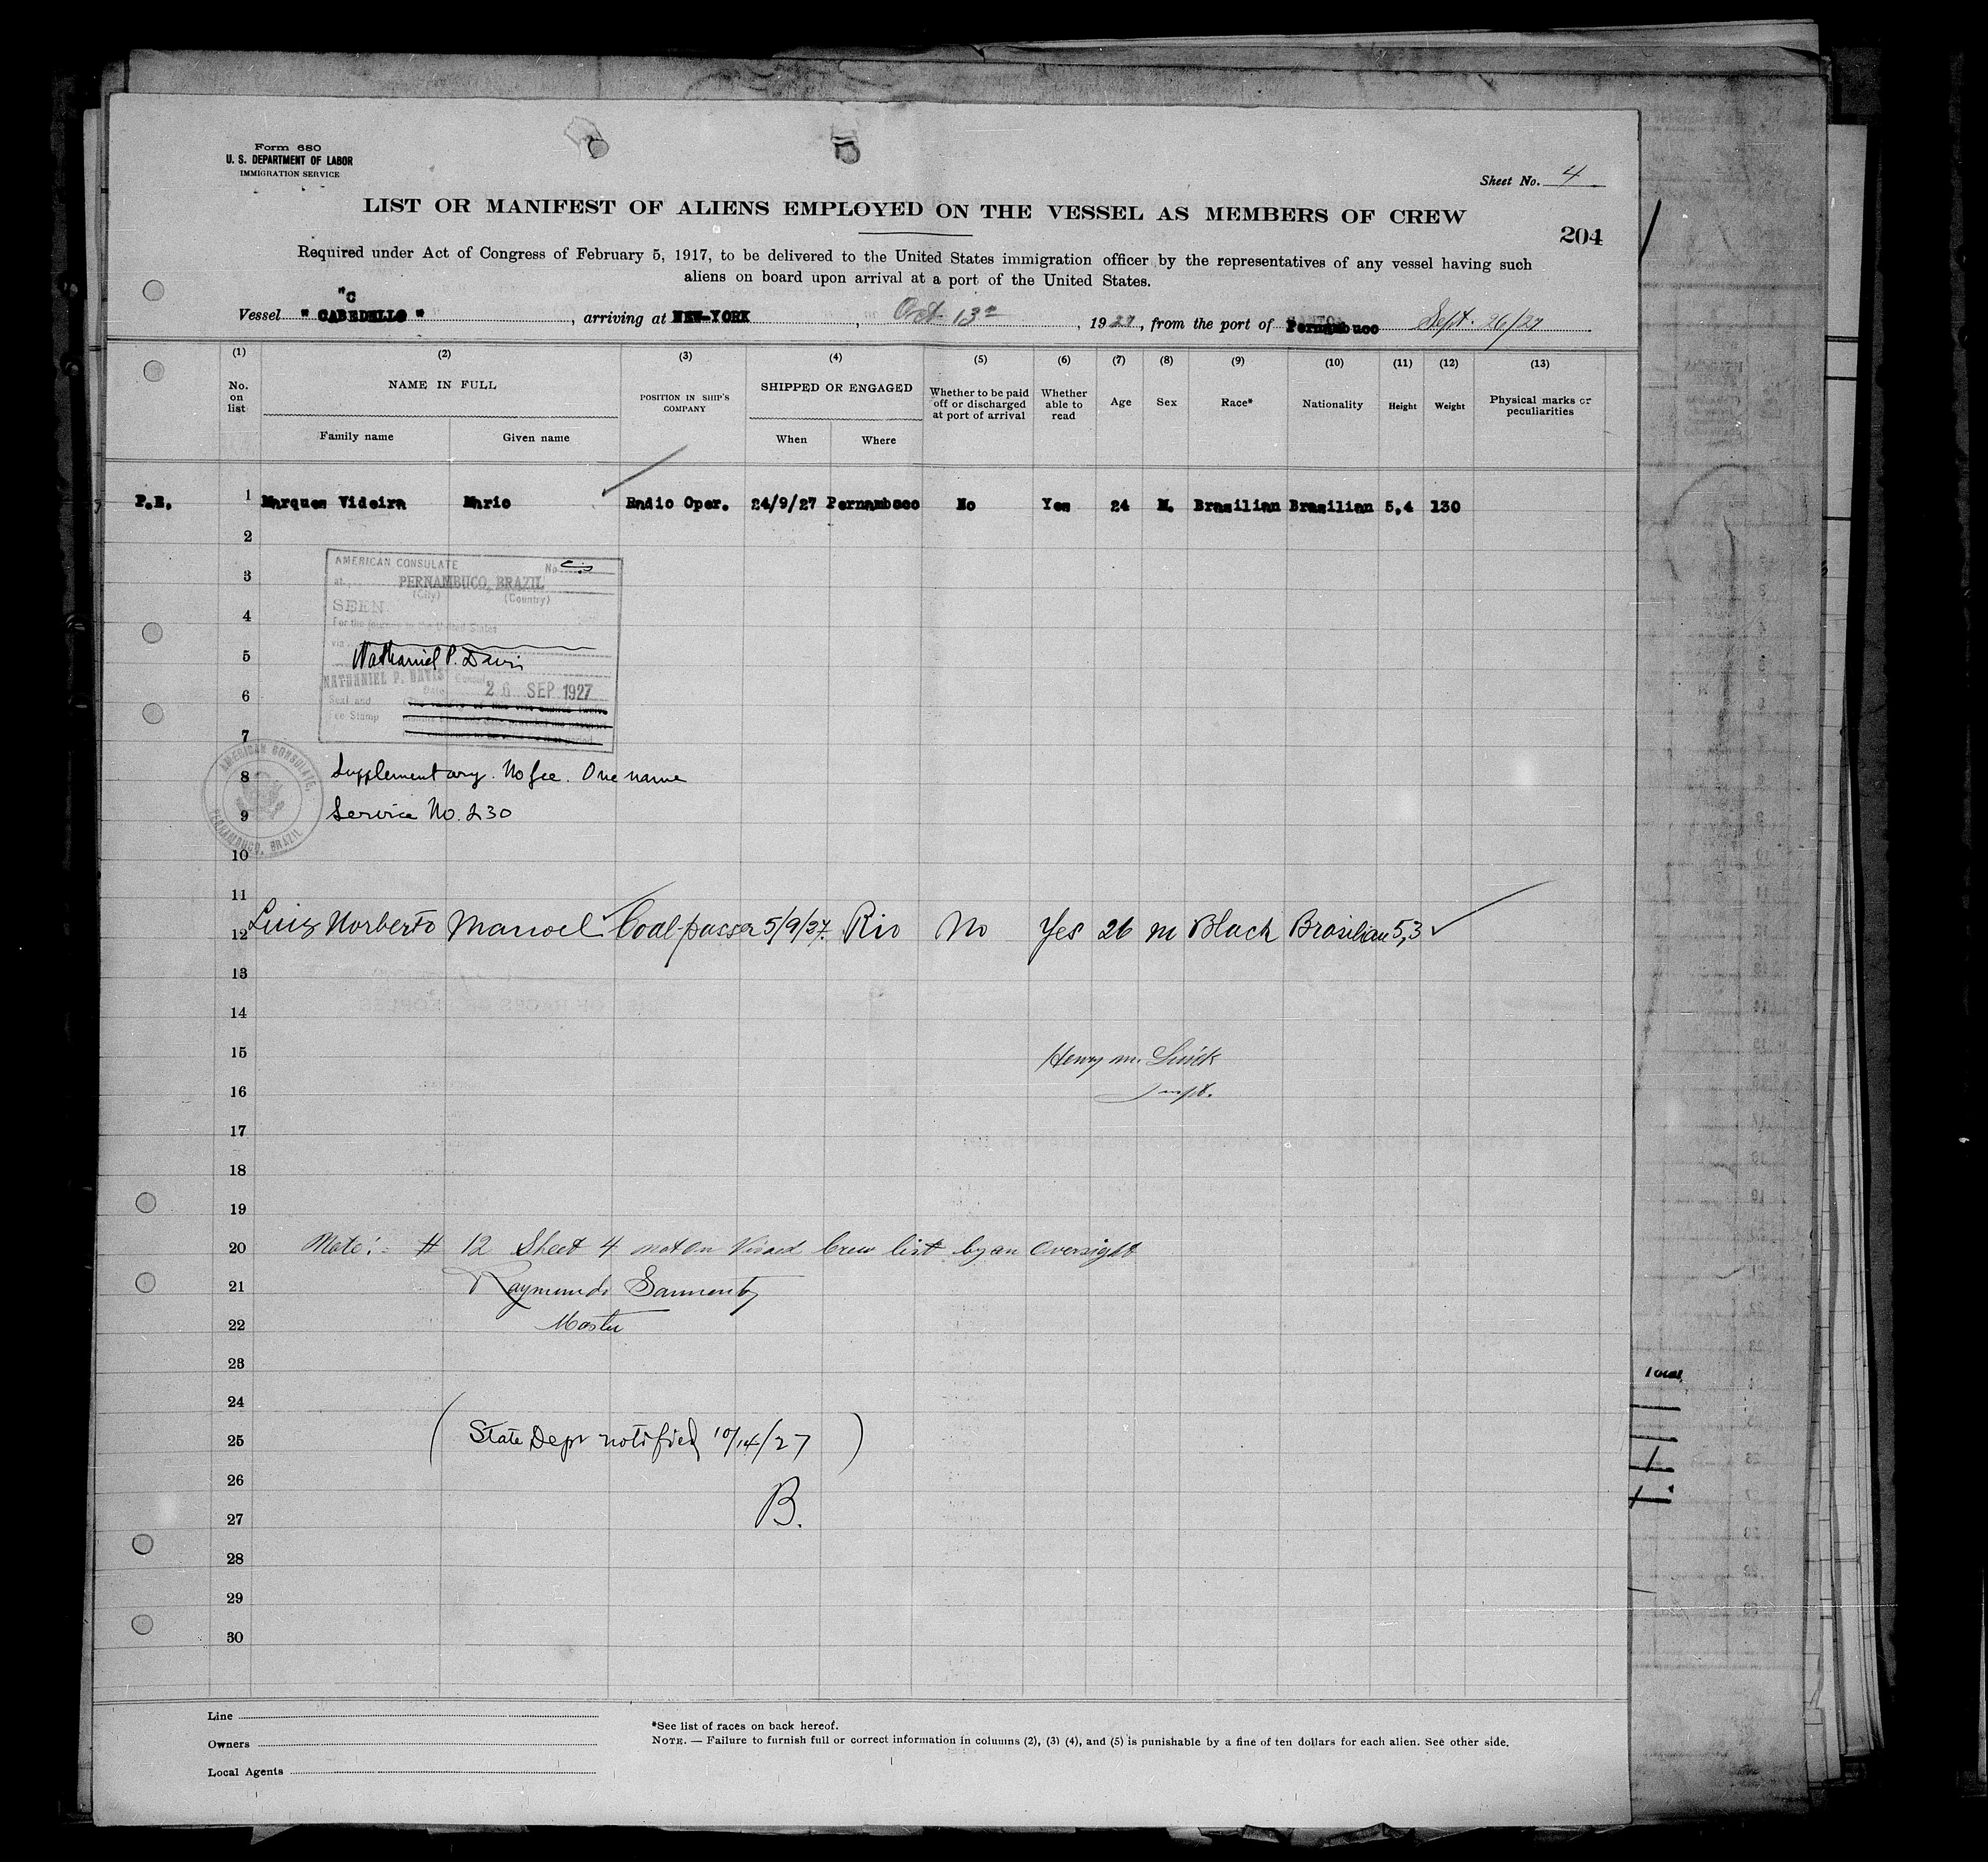 Form 680
U. S. DEPARTMENT OF LABOR
IMMIGRATION SERVICE
Sheet No. 4
LIST OR MANIFEST OF ALIENS EMPLOYED ON THE VESSEL AS MEMBERS OF CREW
204
Required under Act of Congress of February 5, 1917, to be delivered to the United States immigration officer by the representatives of any vessel having such
aliens on board upon arrival at a port of the United States.
Vessel " CABEDELLO " , arriving at NEW-YORK , Oct 13th , 1927, from the port of Pernambuco Sept. 26/27
(1) (2) (3) (4) (5) (6) (7) (8) (9) (10) (11) (12) (13)
No. on list NAME IN FULL POSITION IN SHIP'S COMPANY SHIPPED OR ENGAGED Whether to be paid off or discharged at port of arrival Whether able to read Age Sex Race* Nationality Height Weight Physical marks or peculiarities
Family name Given name When Where
P.E. 1 Marques Videira Mario Radio Oper. 24/9/27 Pernambuco No Yes 24 M. Brasilian Brasilian 5,4 130
2
AMERICAN CONSULATE No
3
at PERNAMBUCO, BRAZIL
(City) (Country)
SEEN
4
For the journey to the United States
via
5 Nathaniel P. Davis
NATHANIEL P. DAVIS Consul
6
Date 26 SEP 1927
Seal and
Fee Stamp
7
AMERICAN CONSULATE, PERNAMBUCO, BRAZIL
8 Supplementary. No fee. One name
9 Service No. 230
10
11
12 Luiz Norberto Manoel Coal-passer 5/9/27. Rio No Yes 26 m Black Brasilian 5,3
13
14
15 Henry m.
16 Inspt.
17
18
19
20 Note:- # 12 Sheet 4 not on Visaed Crew list by an Oversight
21 Raymundo Sarmento
22 Master
23
24
25 (State Dept notified 10/14/27)
26
27 B.
28
29
30
Total
Line
Owners
Local Agents
*See list of races on back hereof.
NOTE. — Failure to furnish full or correct information in columns (2), (3) (4), and (5) is punishable by a fine of ten dollars for each alien. See other side.